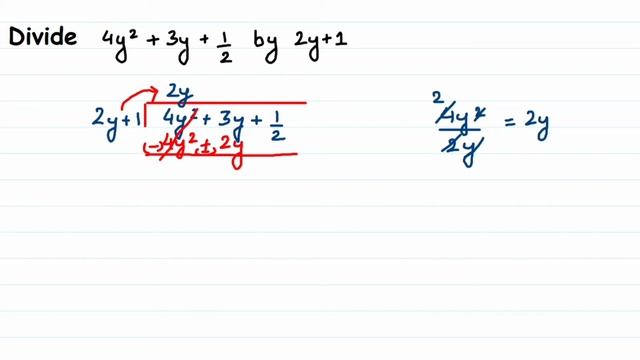 Divide 4y² + 3y + 1/2 by 2y+1
2y
2y+1 4y² + 3y + 1/2
(-)4y² (-)+ 2y
4y²/2y = 2y
2